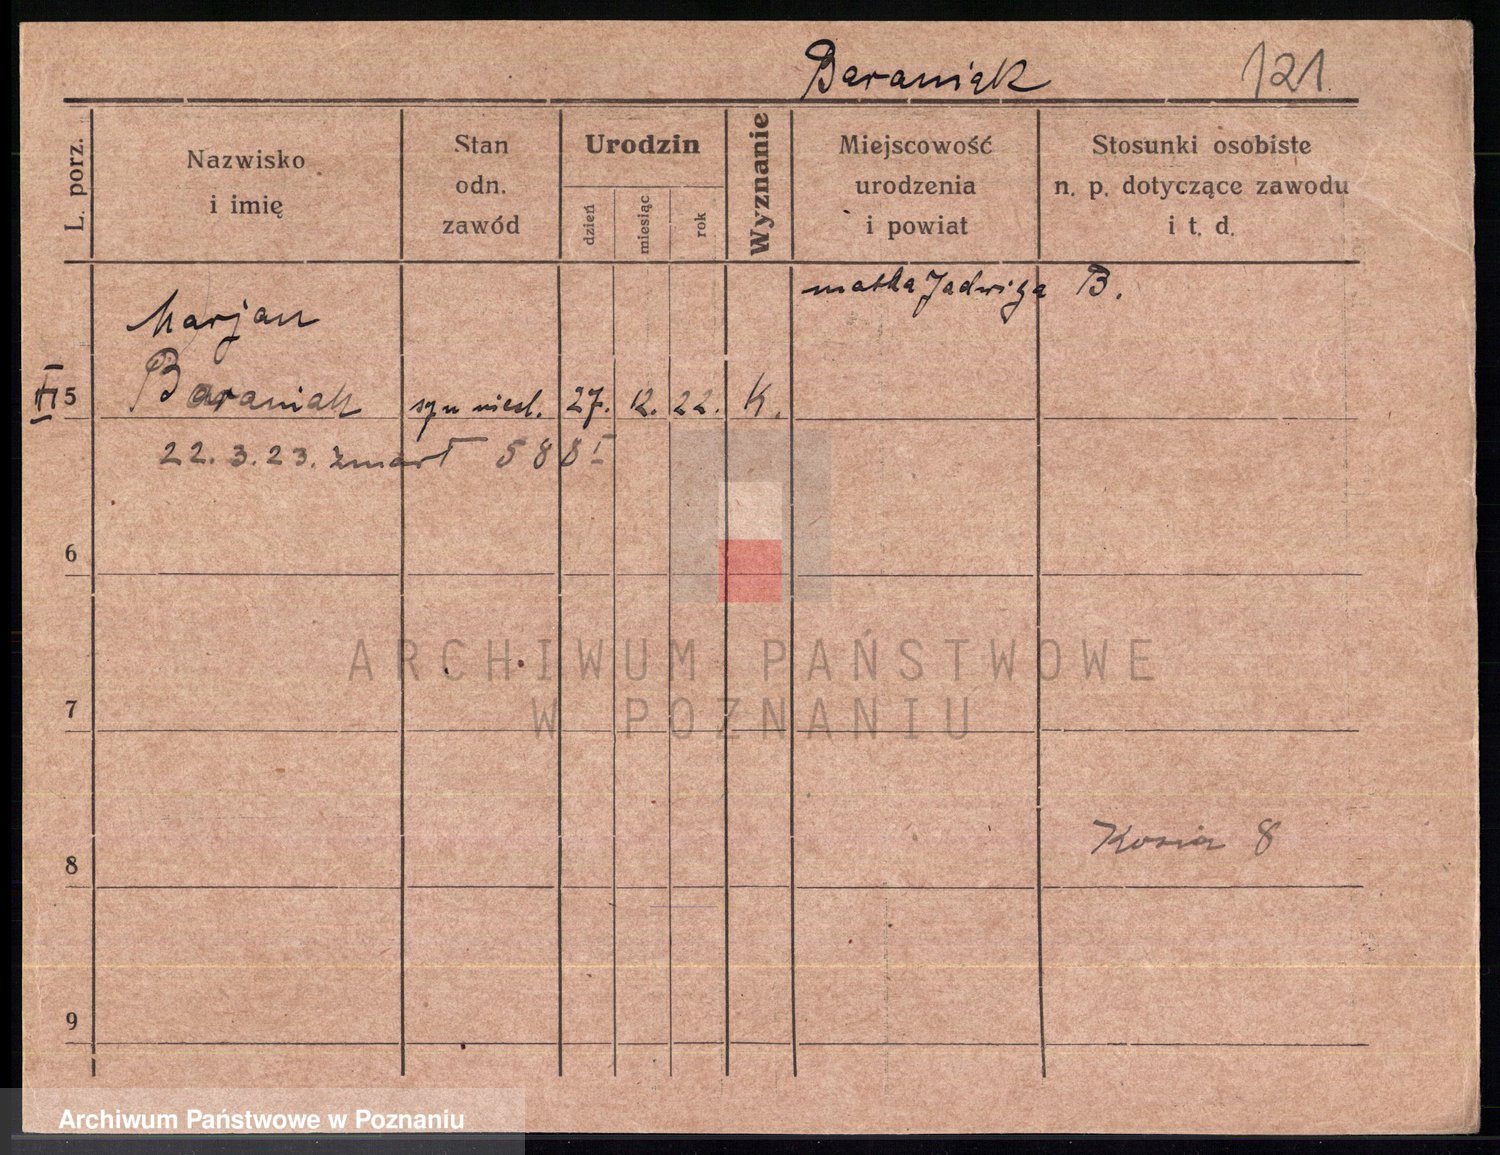 Baraniak 121
L. porz.
Nazwisko
i imię
Stan
odn.
zawód
Urodzin
dzień
miesiąc
rok
Wyznanie
Miejscowość
urodzenia
i powiat
Stosunki osobiste
n. p. dotyczące zawodu
i t. d.
matka Jadwiga B.
Marjan
5 Baraniak syn niesl. 27. 12. 22. K.
22. 3. 23. zmarł 588 I
6
ARCHIWUM PAŃSTWOWE
W POZNANIU
7
8 Kosia 8
9
Archiwum Państwowe w Poznaniu